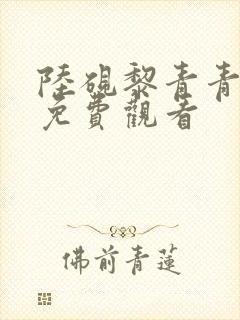 陸硯黎青青
免費觀看
佛前青蓮